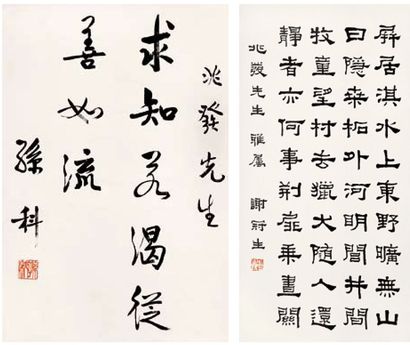 屏居淇水上東野曠無山
日隱桑柘外河明閭井間
牧童望村去獵犬隨人還
靜者亦何事荊扉乘晝關
兆發先生 雅屬 謝冠生
兆發先生
求知若渴從
善如流
孫科